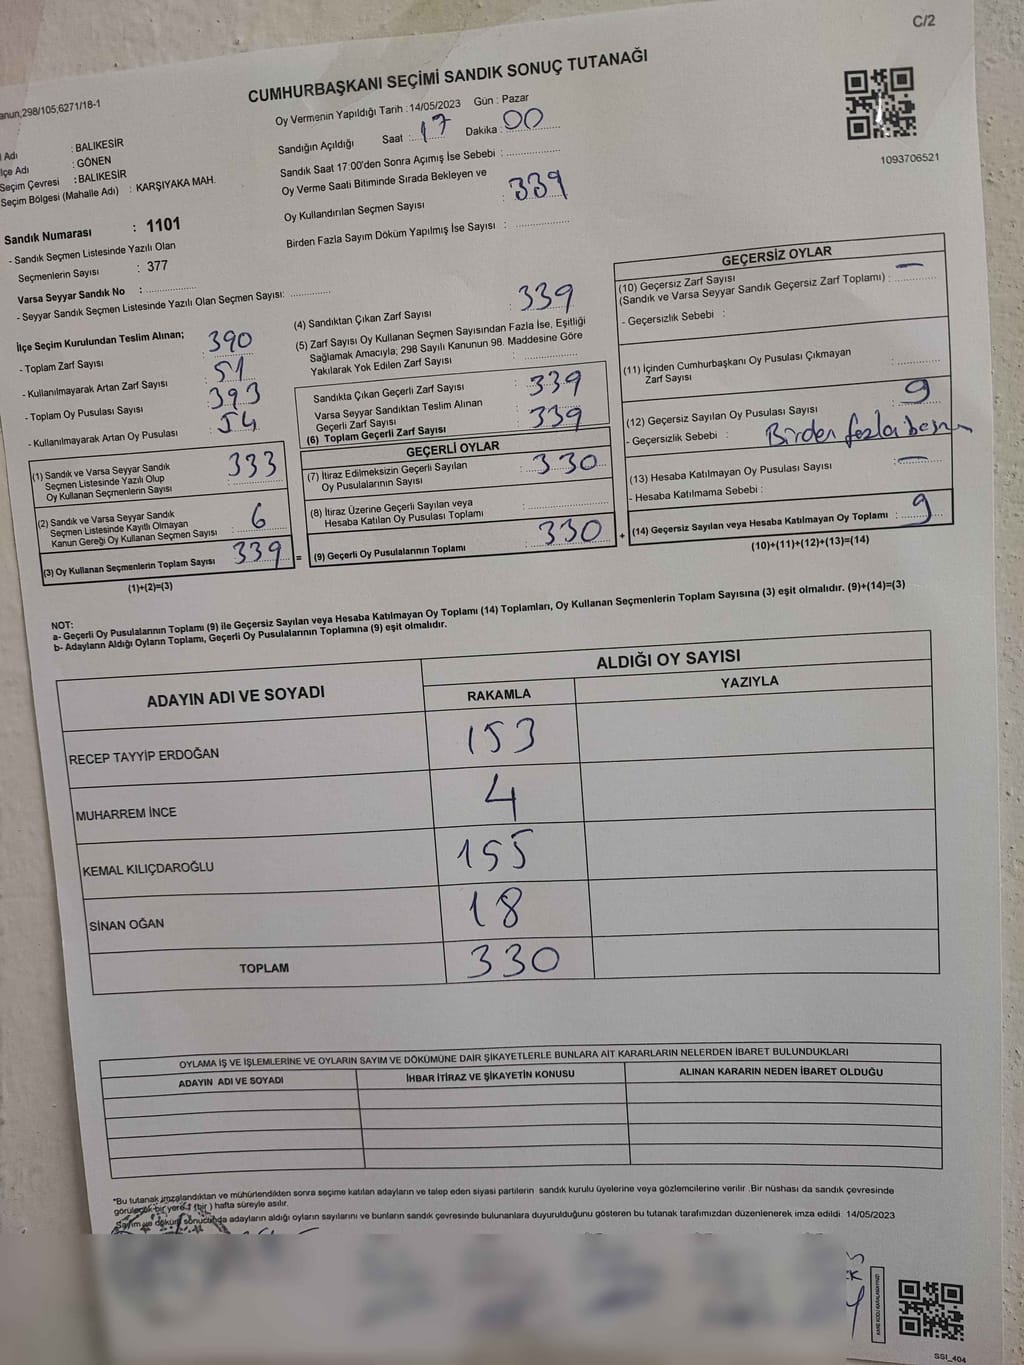 C/2
CUMHURBAŞKANI SEÇİMİ SANDIK SONUÇ TUTANAĞI
anun,298/105,6271/18-1
Oy Vermenin Yapıldığı Tarih : 14/05/2023 Gün : Pazar
Sandığın Açıldığı Saat : 17 Dakika : 00
Sandık Saat 17:00'den Sonra Açımış İse Sebebi :
Oy Verme Saati Bitiminde Sırada Bekleyen ve
Oy Kullandırılan Seçmen Sayısı : 339
Birden Fazla Sayım Döküm Yapılmış İse Sayısı :
1093706521
l Adı : BALIKESİR
lçe Adı : GÖNEN
Seçim Çevresi : BALIKESİR
Seçim Bölgesi (Mahalle Adı) : KARŞIYAKA MAH.
Sandık Numarası : 1101
- Sandık Seçmen Listesinde Yazılı Olan
Seçmenlerin Sayısı : 377
Varsa Seyyar Sandık No :
- Seyyar Sandık Seçmen Listesinde Yazılı Olan Seçmen Sayısı:
İlçe Seçim Kurulundan Teslim Alınan;
- Toplam Zarf Sayısı : 390
- Kullanılmayarak Artan Zarf Sayısı : 51
- Toplam Oy Pusulası Sayısı : 393
- Kullanılmayarak Artan Oy Pusulası : 54
(1) Sandık ve Varsa Seyyar Sandık
Seçmen Listesinde Yazılı Olup
Oy Kullanan Seçmenlerin Sayısı : 333
(2) Sandık ve Varsa Seyyar Sandık
Seçmen Listesinde Kayıtlı Olmayan
Kanun Gereği Oy Kullanan Seçmen Sayısı : 6
(3) Oy Kullanan Seçmenlerin Toplam Sayısı 339
(1)+(2)=(3)
=
(4) Sandıktan Çıkan Zarf Sayısı : 339
(5) Zarf Sayısı Oy Kullanan Seçmen Sayısından Fazla İse, Eşitliği
Sağlamak Amacıyla; 298 Sayılı Kanunun 98. Maddesine Göre
Yakılarak Yok Edilen Zarf Sayısı :
Sandıkta Çıkan Geçerli Zarf Sayısı : 339
Varsa Seyyar Sandıktan Teslim Alınan
Geçerli Zarf Sayısı :
(6) Toplam Geçerli Zarf Sayısı : 339
GEÇERLİ OYLAR
(7) İtiraz Edilmeksizin Geçerli Sayılan
Oy Pusulalarının Sayısı : 330
(8) İtiraz Üzerine Geçerli Sayılan veya
Hesaba Katılan Oy Pusulası Toplamı :
(9) Geçerli Oy Pusulalarının Toplamı : 330
+
GEÇERSİZ OYLAR
(10) Geçersiz Zarf Sayısı
(Sandık ve Varsa Seyyar Sandık Geçersiz Zarf Toplamı) : —
- Geçersizlik Sebebi :
(11) İçinden Cumhurbaşkanı Oy Pusulası Çıkmayan
Zarf Sayısı :
(12) Geçersiz Sayılan Oy Pusulası Sayısı : 9
- Geçersizlik Sebebi : Birden fazla
(13) Hesaba Katılmayan Oy Pusulası Sayısı : —
- Hesaba Katılmama Sebebi :
(14) Geçersiz Sayılan veya Hesaba Katılmayan Oy Toplamı : 9
(10)+(11)+(12)+(13)=(14)
NOT:
a- Geçerli Oy Pusulalarının Toplamı (9) ile Geçersiz Sayılan veya Hesaba Katılmayan Oy Toplamı (14) Toplamları, Oy Kullanan Seçmenlerin Toplam Sayısına (3) eşit olmalıdır. (9)+(14)=(3)
b- Adayların Aldığı Oyların Toplamı, Geçerli Oy Pusulalarının Toplamına (9) eşit olmalıdır.
ADAYIN ADI VE SOYADI
ALDIĞI OY SAYISI
RAKAMLA YAZIYLA
RECEP TAYYİP ERDOĞAN 153
MUHARREM İNCE 4
KEMAL KILIÇDAROĞLU 155
SİNAN OĞAN 18
TOPLAM 330
OYLAMA İŞ VE İŞLEMLERİNE VE OYLARIN SAYIM VE DÖKÜMÜNE DAİR ŞİKAYETLERLE BUNLARA AİT KARARLARIN NELERDEN İBARET BULUNDUKLARI
ADAYIN ADI VE SOYADI İHBAR İTİRAZ VE ŞİKAYETİN KONUSU ALINAN KARARIN NEDEN İBARET OLDUĞU
*Bu tutanak imzalandıktan ve mühürlendikten sonra seçime katılan adayların ve talep eden siyasi partilerin sandık kurulu üyelerine veya gözlemcilerine verilir .Bir nüshası da sandık çevresinde
görülecek bir yere 1 (bir ) hafta süreyle asılır.
Sayım ve döküm sonucunda adayların aldığı oyların sayılarını ve bunların sandık çevresinde bulunanlara duyurulduğunu gösteren bu tutanak tarafımızdan düzenlenerek imza edildi. 14/05/2023
SSİ_404